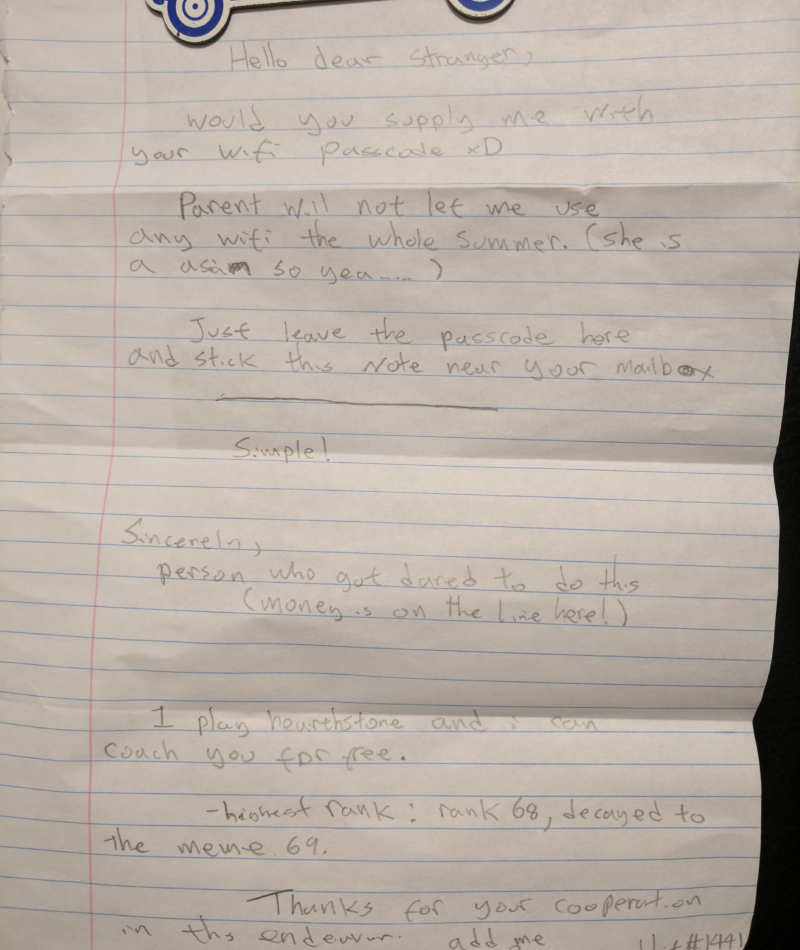 Hello dear stranger,
would you supply me with
your wifi passcode xD
Parent will not let me use
any wifi the whole summer. (she is
a asian so yea.... )
Just leave the passcode here
and stick this Note near your mailbox
Simple!
Sincereln,
person who got dared to do this
(money is on the line here!)
I play hearthstone and i can
coach you for free.
-highest rank: rank 68, decayed to
the meme 69.
Thanks for your cooperation
in ths endeavur. add me #1441